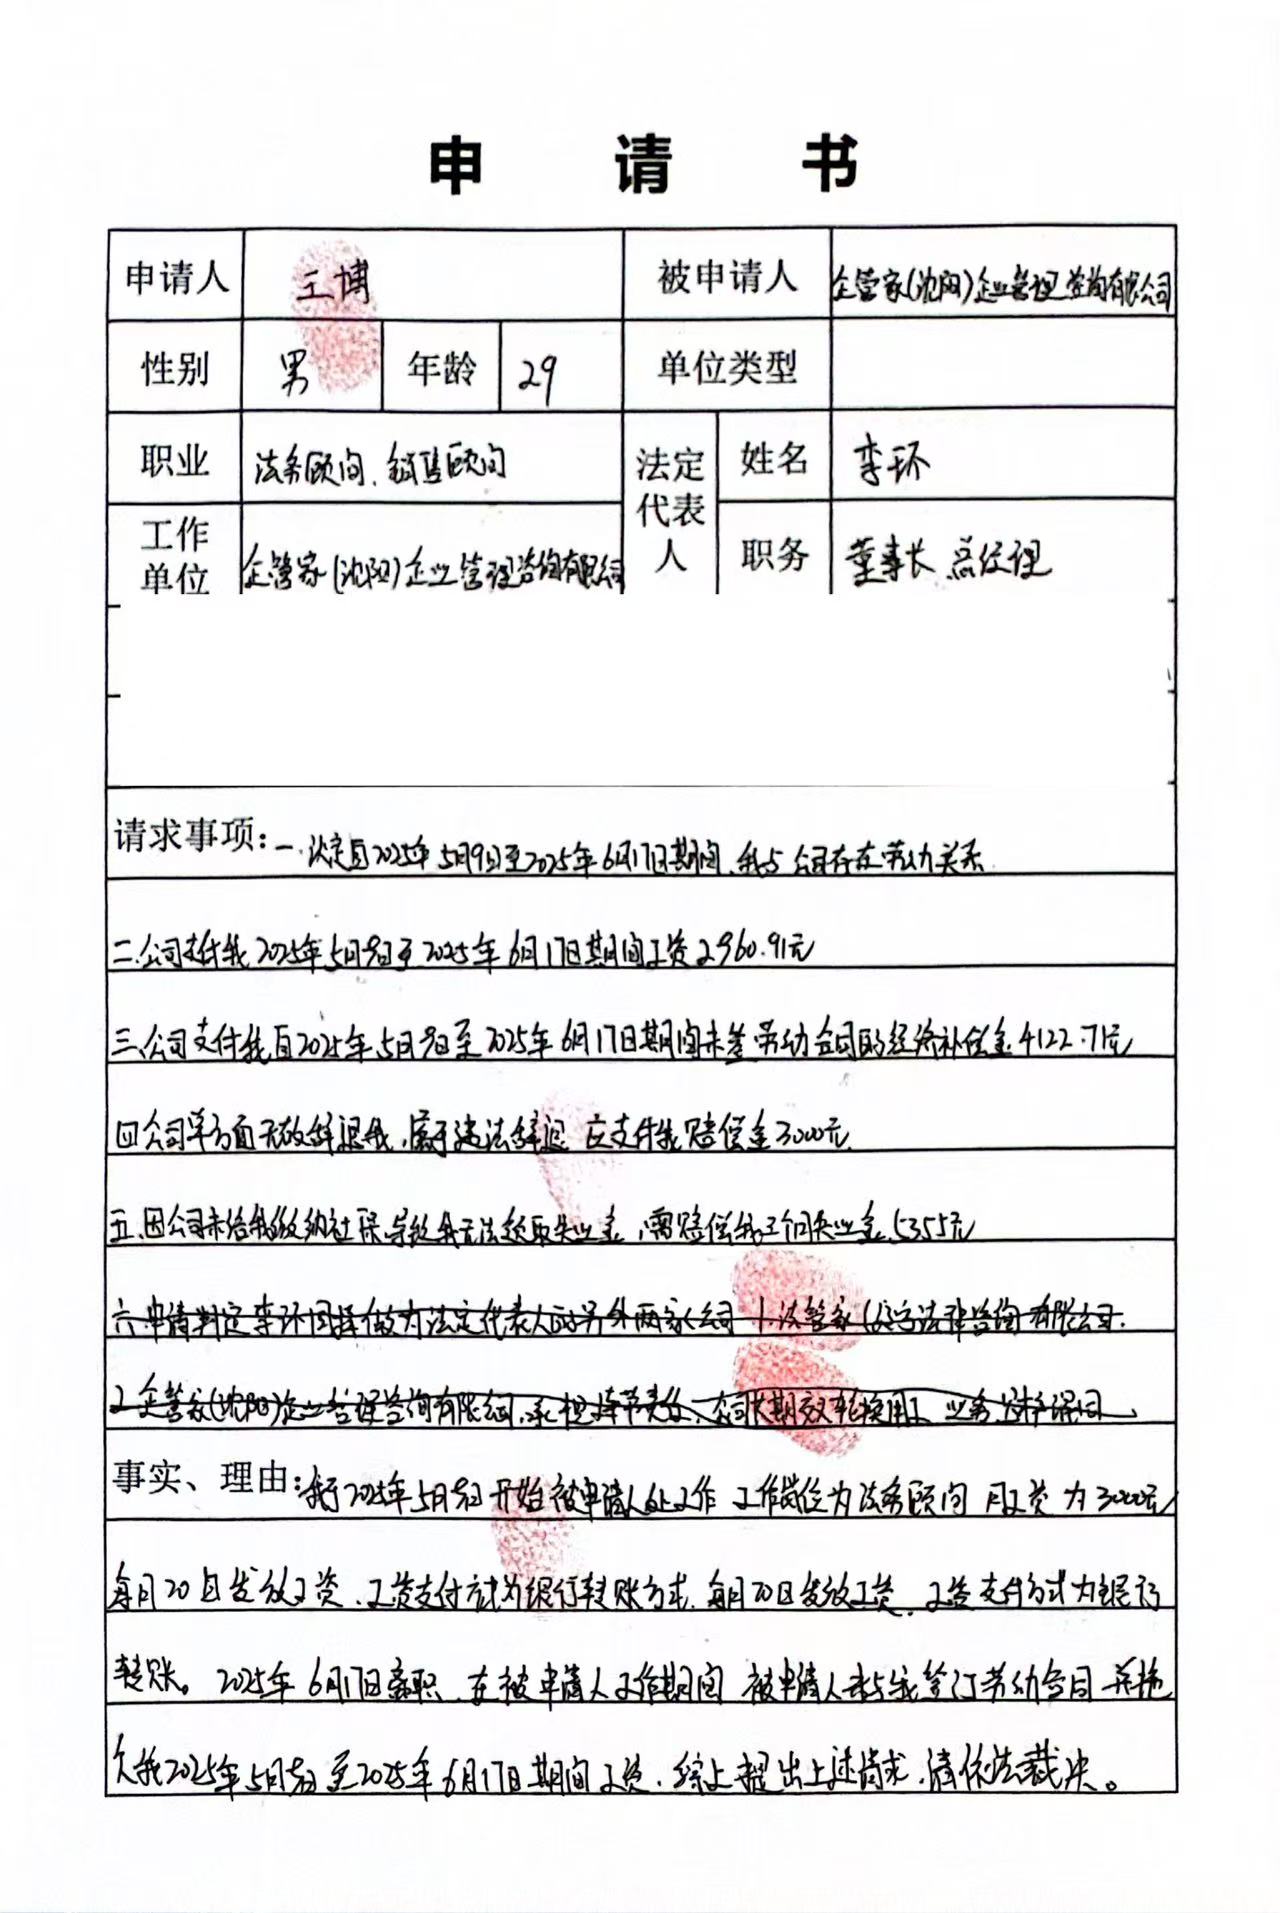 申请书
申请人 王博 被申请人 企管家(沈阳)企业管理咨询有限公司
性别 男 年龄 29 单位类型
职业 法务顾问、销售顾问 法定代表人 姓名 李环
工作单位 企管家(沈阳)企业管理咨询有限公司 职务 董事长 总经理
请求事项:一.决定自2025年5月9日至2025年6月17日期间,我与公司存在劳动关系
二.公司支付我2025年5月9日至2025年6月17日期间工资2960.91元
三、公司支付我自2025年5月9日至2025年6月17日期间未签劳动合同的经济补偿金4122.71元
四公司单方面无故辞退我,属于违法辞退 应支付我赔偿金3000元
五.因公司未给我缴纳社保导致我无法领取失业金,需赔偿我三个月失业金5355元
六.申请判定李环同样做为法定代表人的另外两家公司 1.法管家 法律咨询有限公司.
2.企管家(沈阳)企业管理咨询有限公司,承担连带责任、公司长期交叉轮换用工 业务 财产混同
事实、理由:我于2025年5月9日开始被申请人处工作 工作岗位为法务顾问 月工资为3000元
每月20日发放工资、工资支付方式为银行转账方式.每月20日发放工资.工资支付方式为银行
转账。2025年6月17日离职、在被申请人工作期间 被申请人未与我签订劳动合同 并拖
欠我2025年5月9日至2025年6月17日期间工资.综上提出上述请求,请依法裁决。